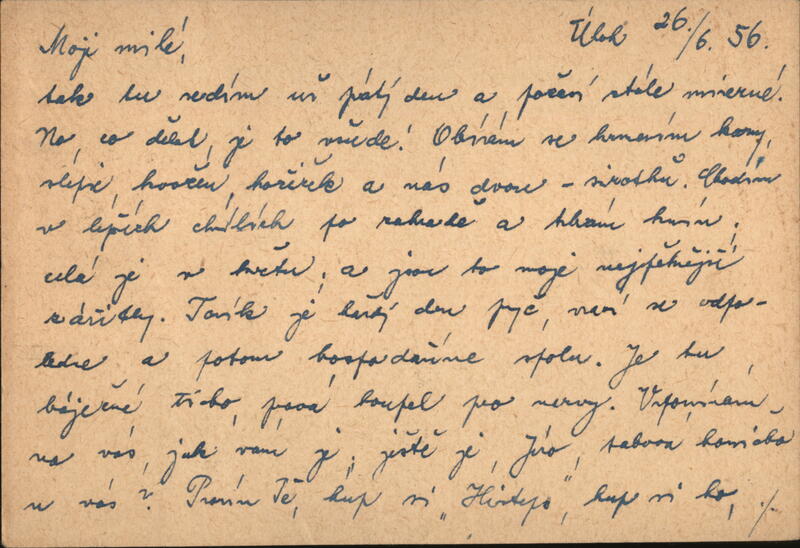 Moji milé, Úlok 26./6. 56.
tak tu sedím už pátý den a počasí stále mizerné.
No, co dělat, je to všude! Obírám se krmením kozy,
slípie, koček a nás dvou – sirotků. Chodím
v lepších chvílích po zahradě a trhám
celá je v květu, a jsou to moje nejpěknější
zážitky. Toník je každý den pryč, vrací se odpo-
ledne a potom hospodaříme spolu. Je tu
báječné ticho, pravá koupel pro nervy. Vzpomínám
na vás, jak vám je, ještě je, Jiro, taková honička
u vás? Prosím Tě, kup si "Histefo", kup si ho, ./.